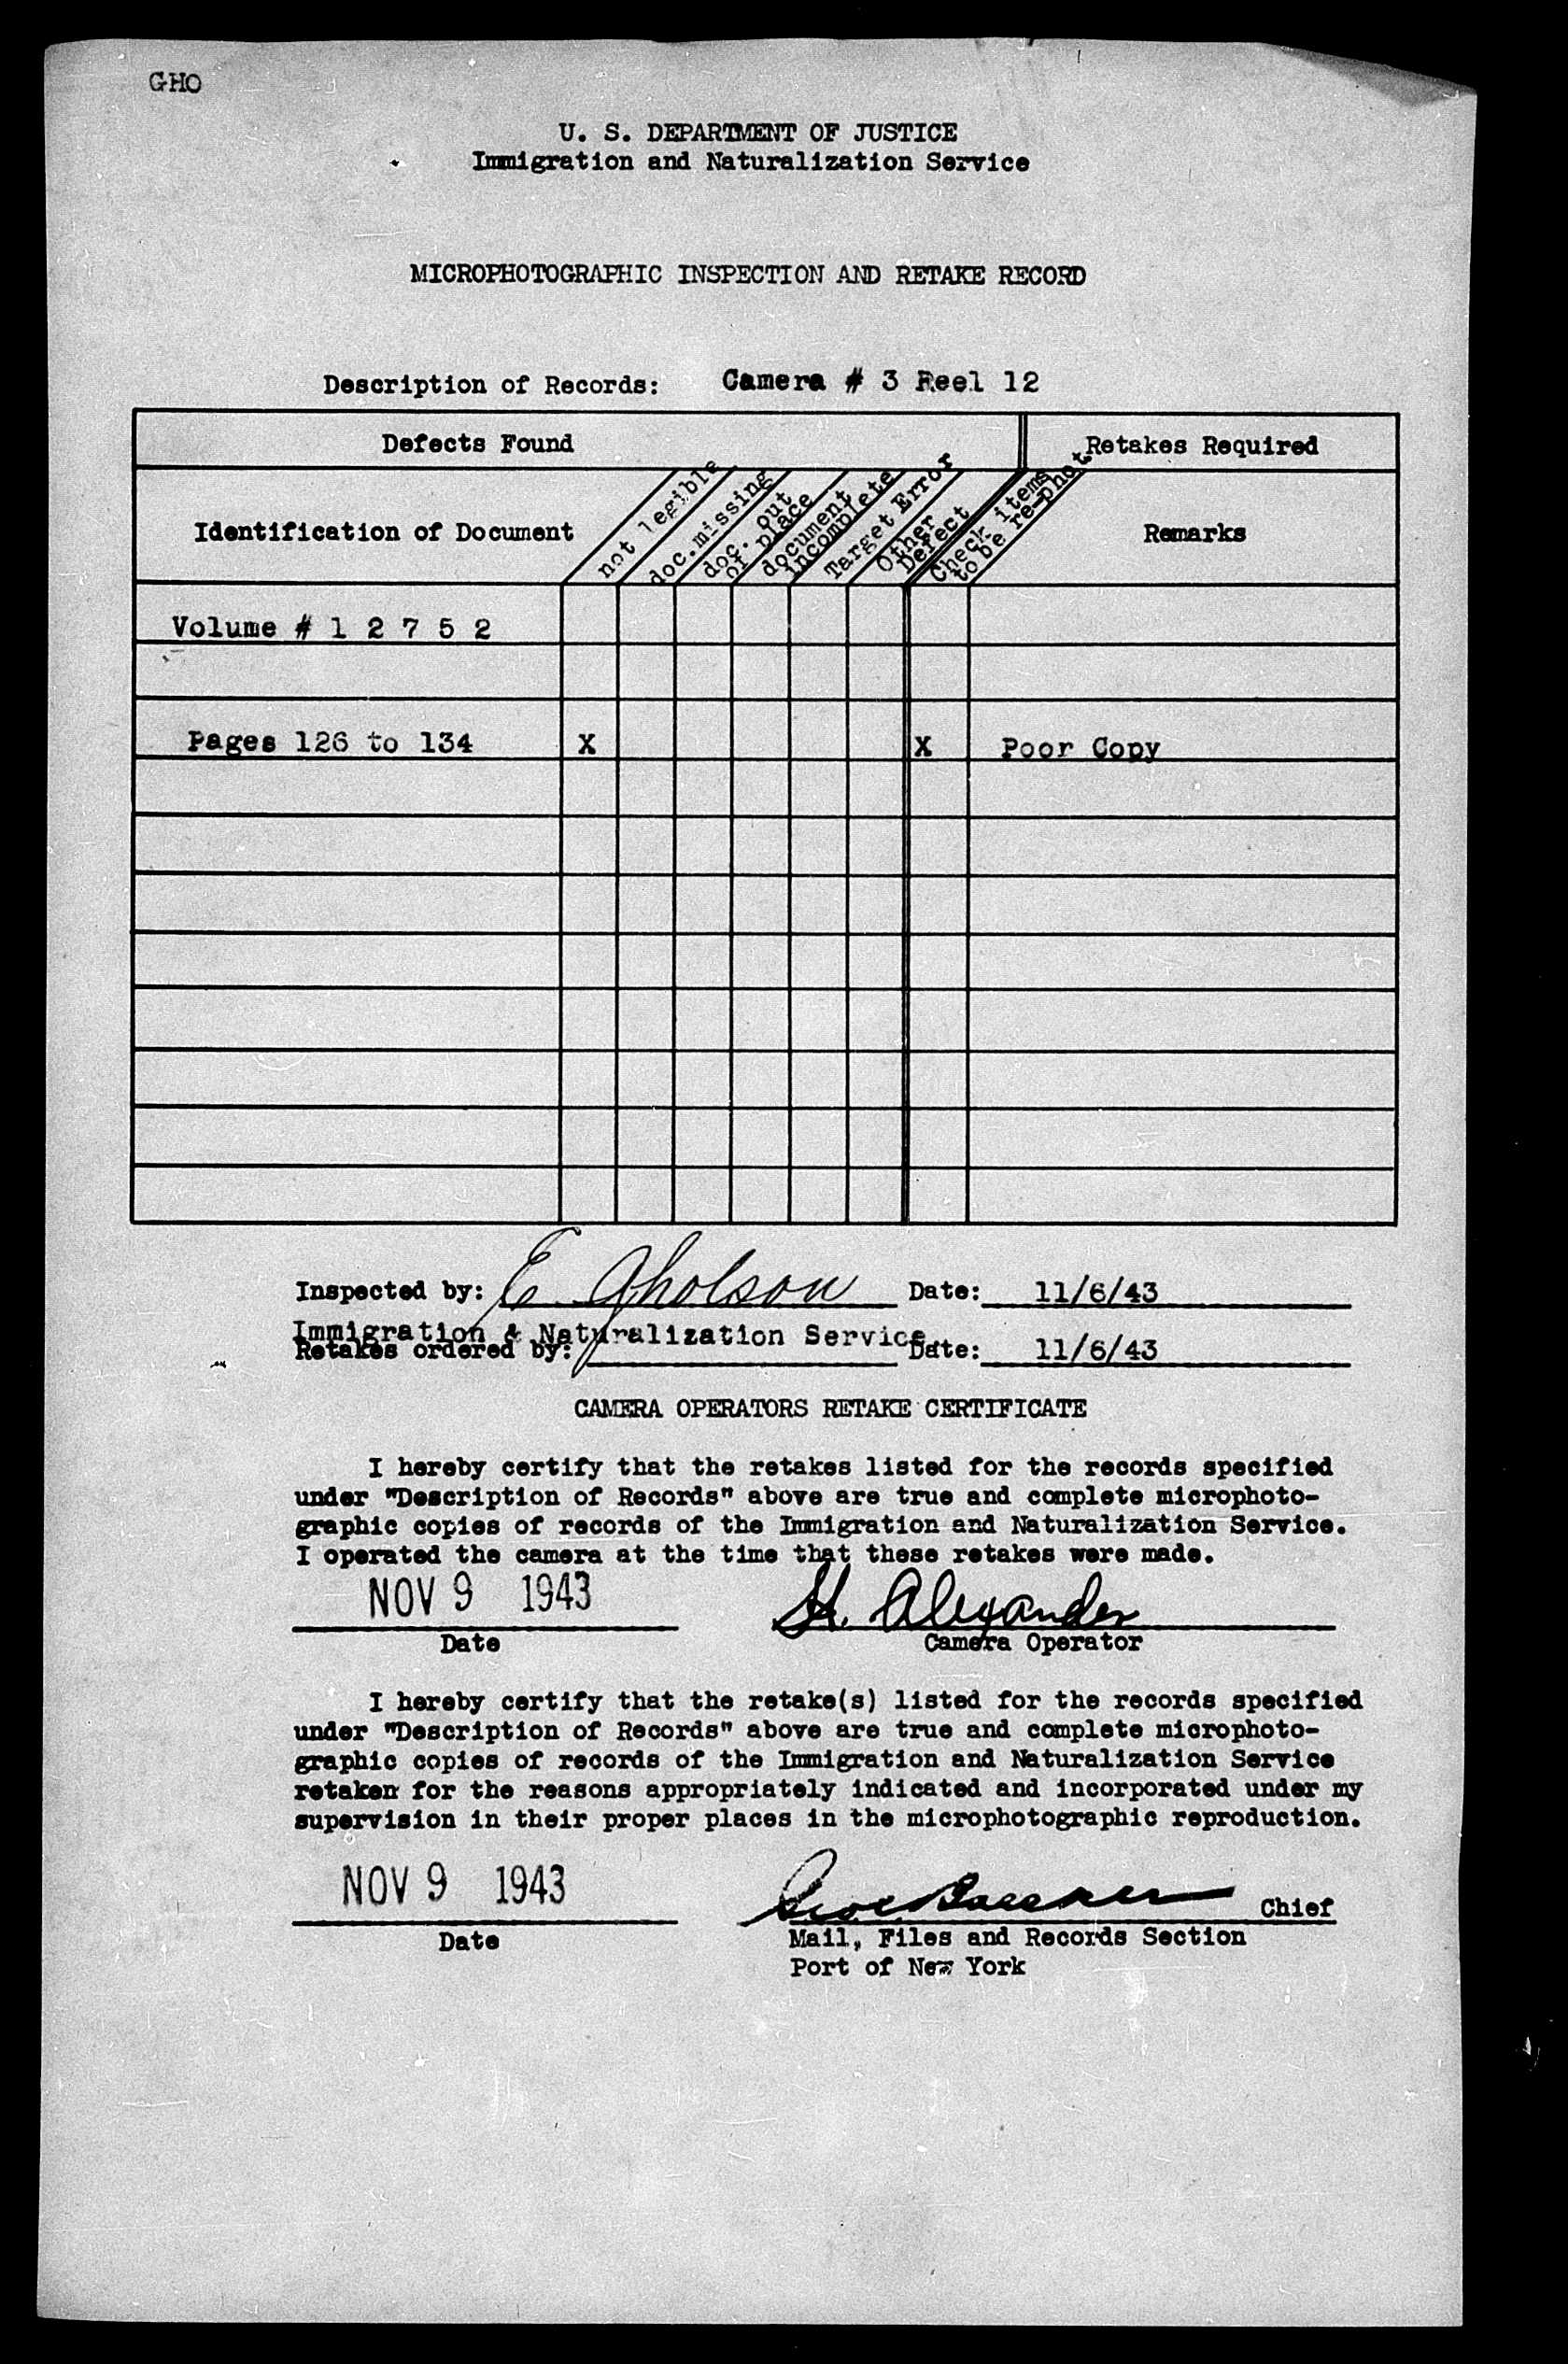 GHO
U. S. DEPARTMENT OF JUSTICE
Immigration and Naturalization Service
MICROPHOTOGRAPHIC INSPECTION AND RETAKE RECORD
Description of Records: Camera # 3 Reel 12
Defects Found
Retakes Required
Identification of Document
not legible
doc.missing
doc. out
of place
document
incomplete
Target Error
Other
Defect
Check items
to be re-phot
Remarks
Volume # 1 2 7 5 2
Pages 126 to 134 X X Poor Copy
Inspected by: E Gholson Date: 11/6/43
Immigration & Naturalization Service
Retakes ordered by: Date: 11/6/43
CAMERA OPERATORS RETAKE CERTIFICATE
I hereby certify that the retakes listed for the records specified
under "Description of Records" above are true and complete microphoto-
graphic copies of records of the Immigration and Naturalization Service.
I operated the camera at the time that these retakes were made.
NOV 9 1943 H. Alexander
Date Camera Operator
I hereby certify that the retake(s) listed for the records specified
under "Description of Records" above are true and complete microphoto-
graphic copies of records of the Immigration and Naturalization Service
retaken for the reasons appropriately indicated and incorporated under my
supervision in their proper places in the microphotographic reproduction.
NOV 9 1943 Chief
Date Mail, Files and Records Section
Port of New York